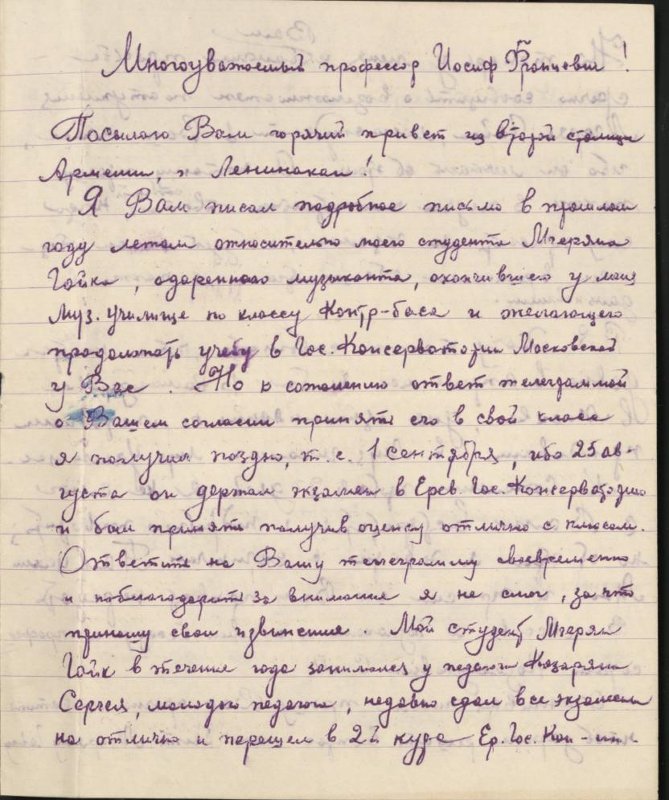 Многоуважаемый профессор Иосиф Францевич!
Посылаю Вам горячий привет из второй столицы
Армении, г. Ленинакан!
Я Вам писал подробное письмо в прошлом
году летом относительно моего студента Мгеряна
Гайка, одаренного музыканта, окончившего у меня
Муз. училище по классу Контр-баса и желающего
продолжать учебу в Гос. Консерватории Московской
у Вас. Но к сожалению ответ телеграммой
о Вашем согласии принять его в свой класс
я получил поздно, т. е. 1 сентября, ибо 25 ав-
густа он держал экзамен в Ерев. Гос. Консерваторию
и был принят получив оценку отлично с плюсом.
Ответить на Вашу телеграмму своевременно
и поблагодарить за внимание я не смог, за что
приношу свои извинения. Мой студент Мгерян
Гайк в течение года занимался у педагога Казаряна
Сергея, молодого педагога, недавно сдал все экзамены
на отлично и перешел в 2й курс Ер. Гос. Кон-ии.